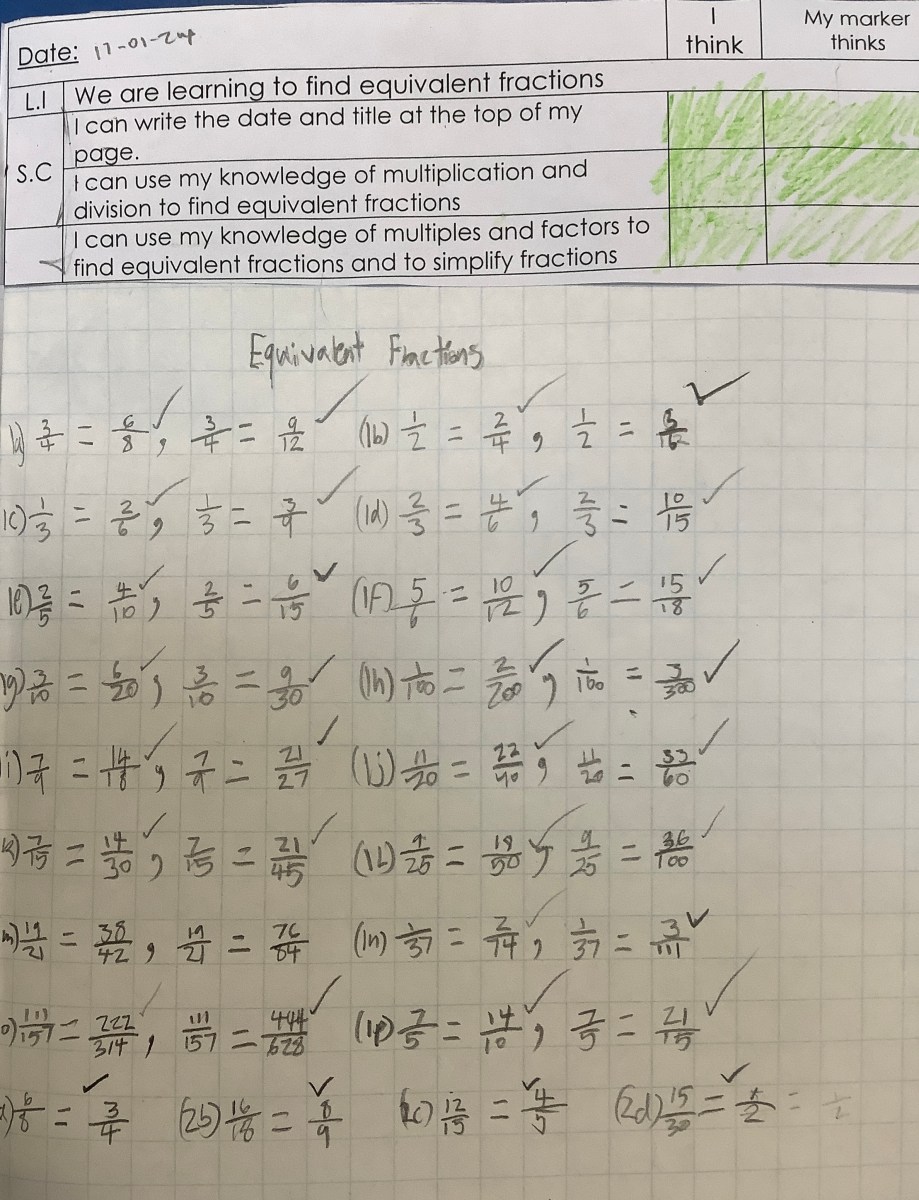 I think
My marker thinks
Date: 17-01-24
L.I We are learning to find equivalent fractions
S.C
I can write the date and title at the top of my page.
I can use my knowledge of multiplication and division to find equivalent fractions
I can use my knowledge of multiples and factors to find equivalent fractions and to simplify fractions
Equivalent Fractions
1a) 3/4 = 6/8, 3/4 = 9/12 (1b) 1/2 = 2/4, 1/2 =
1c) 1/3 = 2/6, 1/3 = 3/9 (1d) 2/3 = 4/6, 2/3 = 10/15
1e) 2/5 = 4/10, 2/5 = 6/15 (1f) 5/6 = 10/12, 5/6 = 15/18
1g) 3/10 = 6/20, 3/10 = 9/30 (1h) 1/100 = 2/200, 1/100 = 3/300
i) 7/9 = 14/18, 7/9 = 21/27 (1j) 11/20 = 22/40, 11/20 = 33/60
k) 7/15 = 14/30, 7/15 = 21/45 (1L) 9/25 = 18/50, 9/25 = 36/100
m) 19/21 = 38/42, 19/21 = 76/84 (1n) 1/37 = 2/74, 1/37 = 3/111
o) 111/157 = 222/314, 111/157 = 444/628 (1p) 7/5 = 14/10, 7/5 = 21/15
) 6/8 = 3/4 (2b) 16/18 = 8/9 2c) 12/15 = 4/5 (2d) 15/30 = 1/2 = 1/2